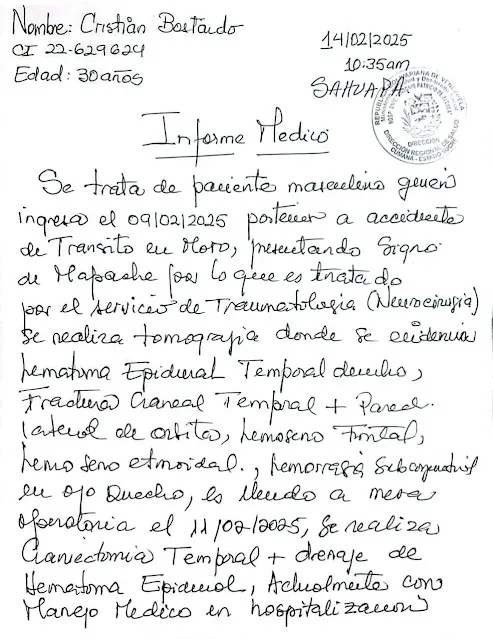 Nombre: Cristian Bastardo
CI 22-629624
Edad: 30 años
14/02/2025
10:35am
SAHUAPA
REPÚBLICA BOLIVARIANA DE VENEZUELA
DIRECCIÓN
DIRECCIÓN REGIONAL DE SALUD
CUMANÁ - ESTADO SUCRE
Informe Medico
Se trata de paciente masculino quien
ingresa el 09/02/2025 posterior a accidente
de Transito en Moto, presentando Signo
de Mapache por lo que es tratado
por el servicio de Traumatologia (Neurocirugia)
Se realiza tomografia donde se evidencia
hematoma Epidural Temporal derecho,
Fractura Craneal Temporal + Pared
lateral de orbita, hemoseno Frontal,
hemo seno etmoidal., hemorragia Subconjuntival
en ojo Derecho, es llevado a mesa
operatoria el 11/02/2025, Se realiza
Craniectomia Temporal + drenaje de
Hematoma Epidural, Actualmente con
Manejo Medico en hospitalización